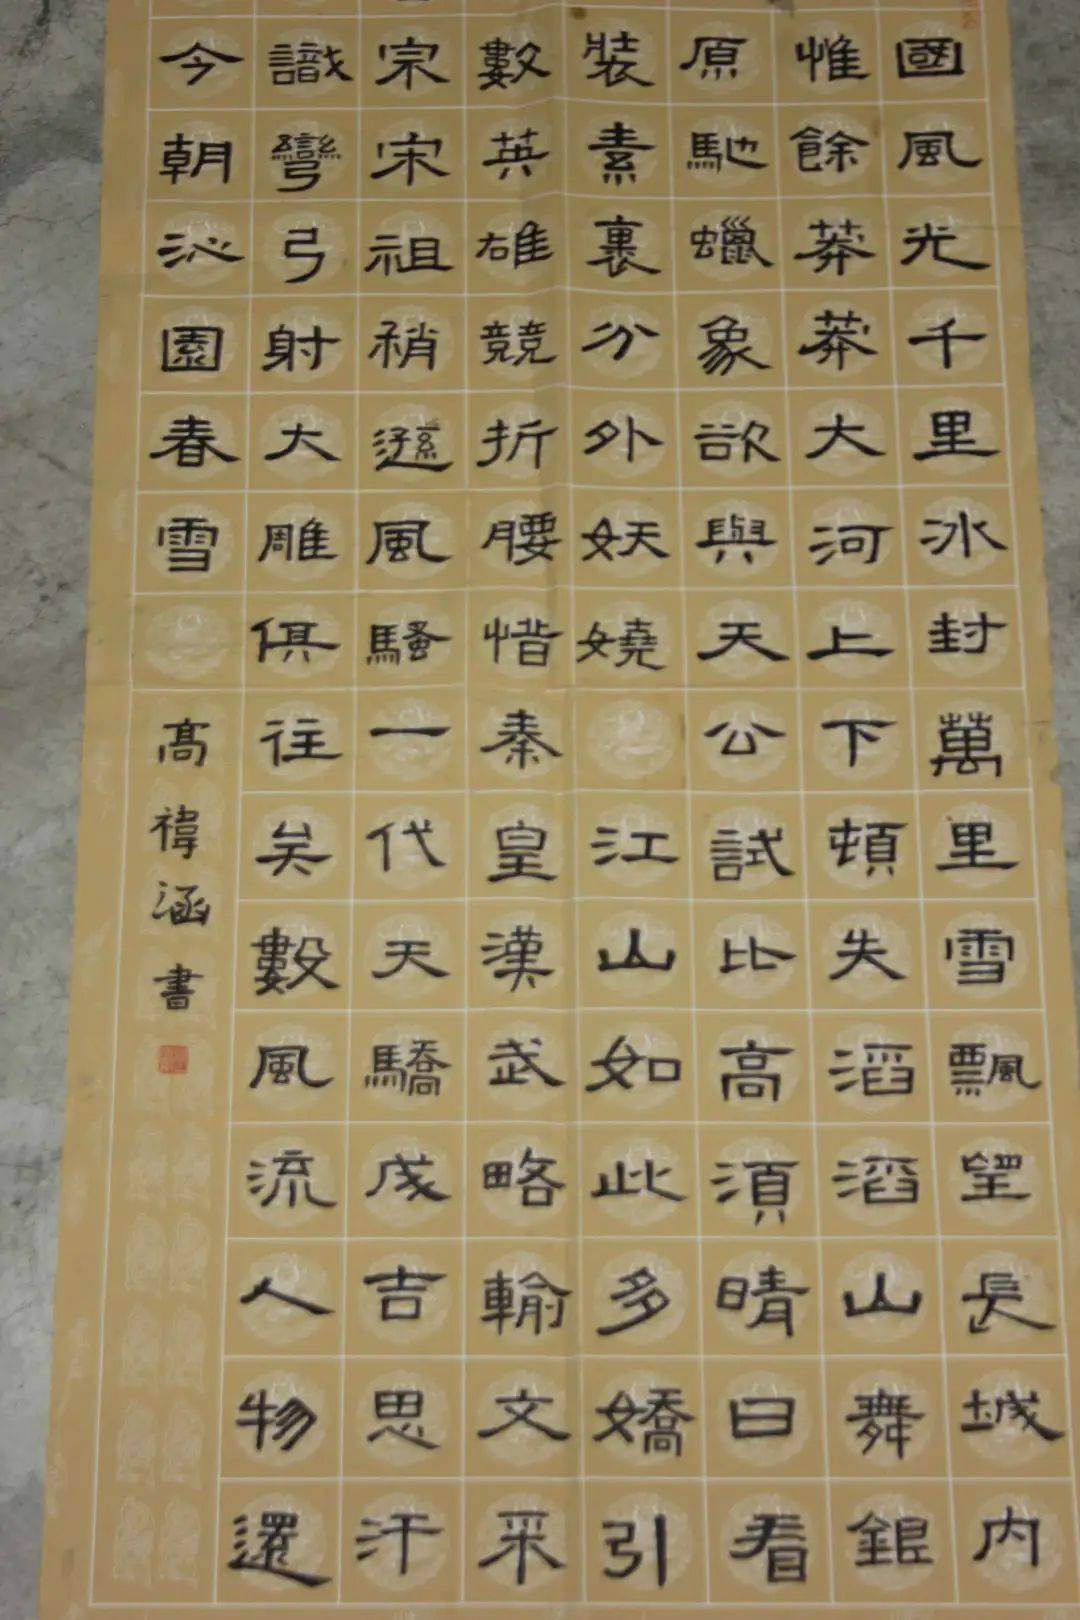 國風光千里冰封萬里雪飄望長城內
惟餘莽莽大河上下頓失滔滔山舞銀
原馳蠟象欲與天公試比高須晴日看
裝素裹分外妖嬈 江山如此多嬌引
數英雄競折腰惜秦皇漢武略輸文采
宗宋祖稍遜風騷一代天驕成吉思汗
識彎弓射大雕俱往矣數風流人物還
今朝沁園春雪
高禕涵書